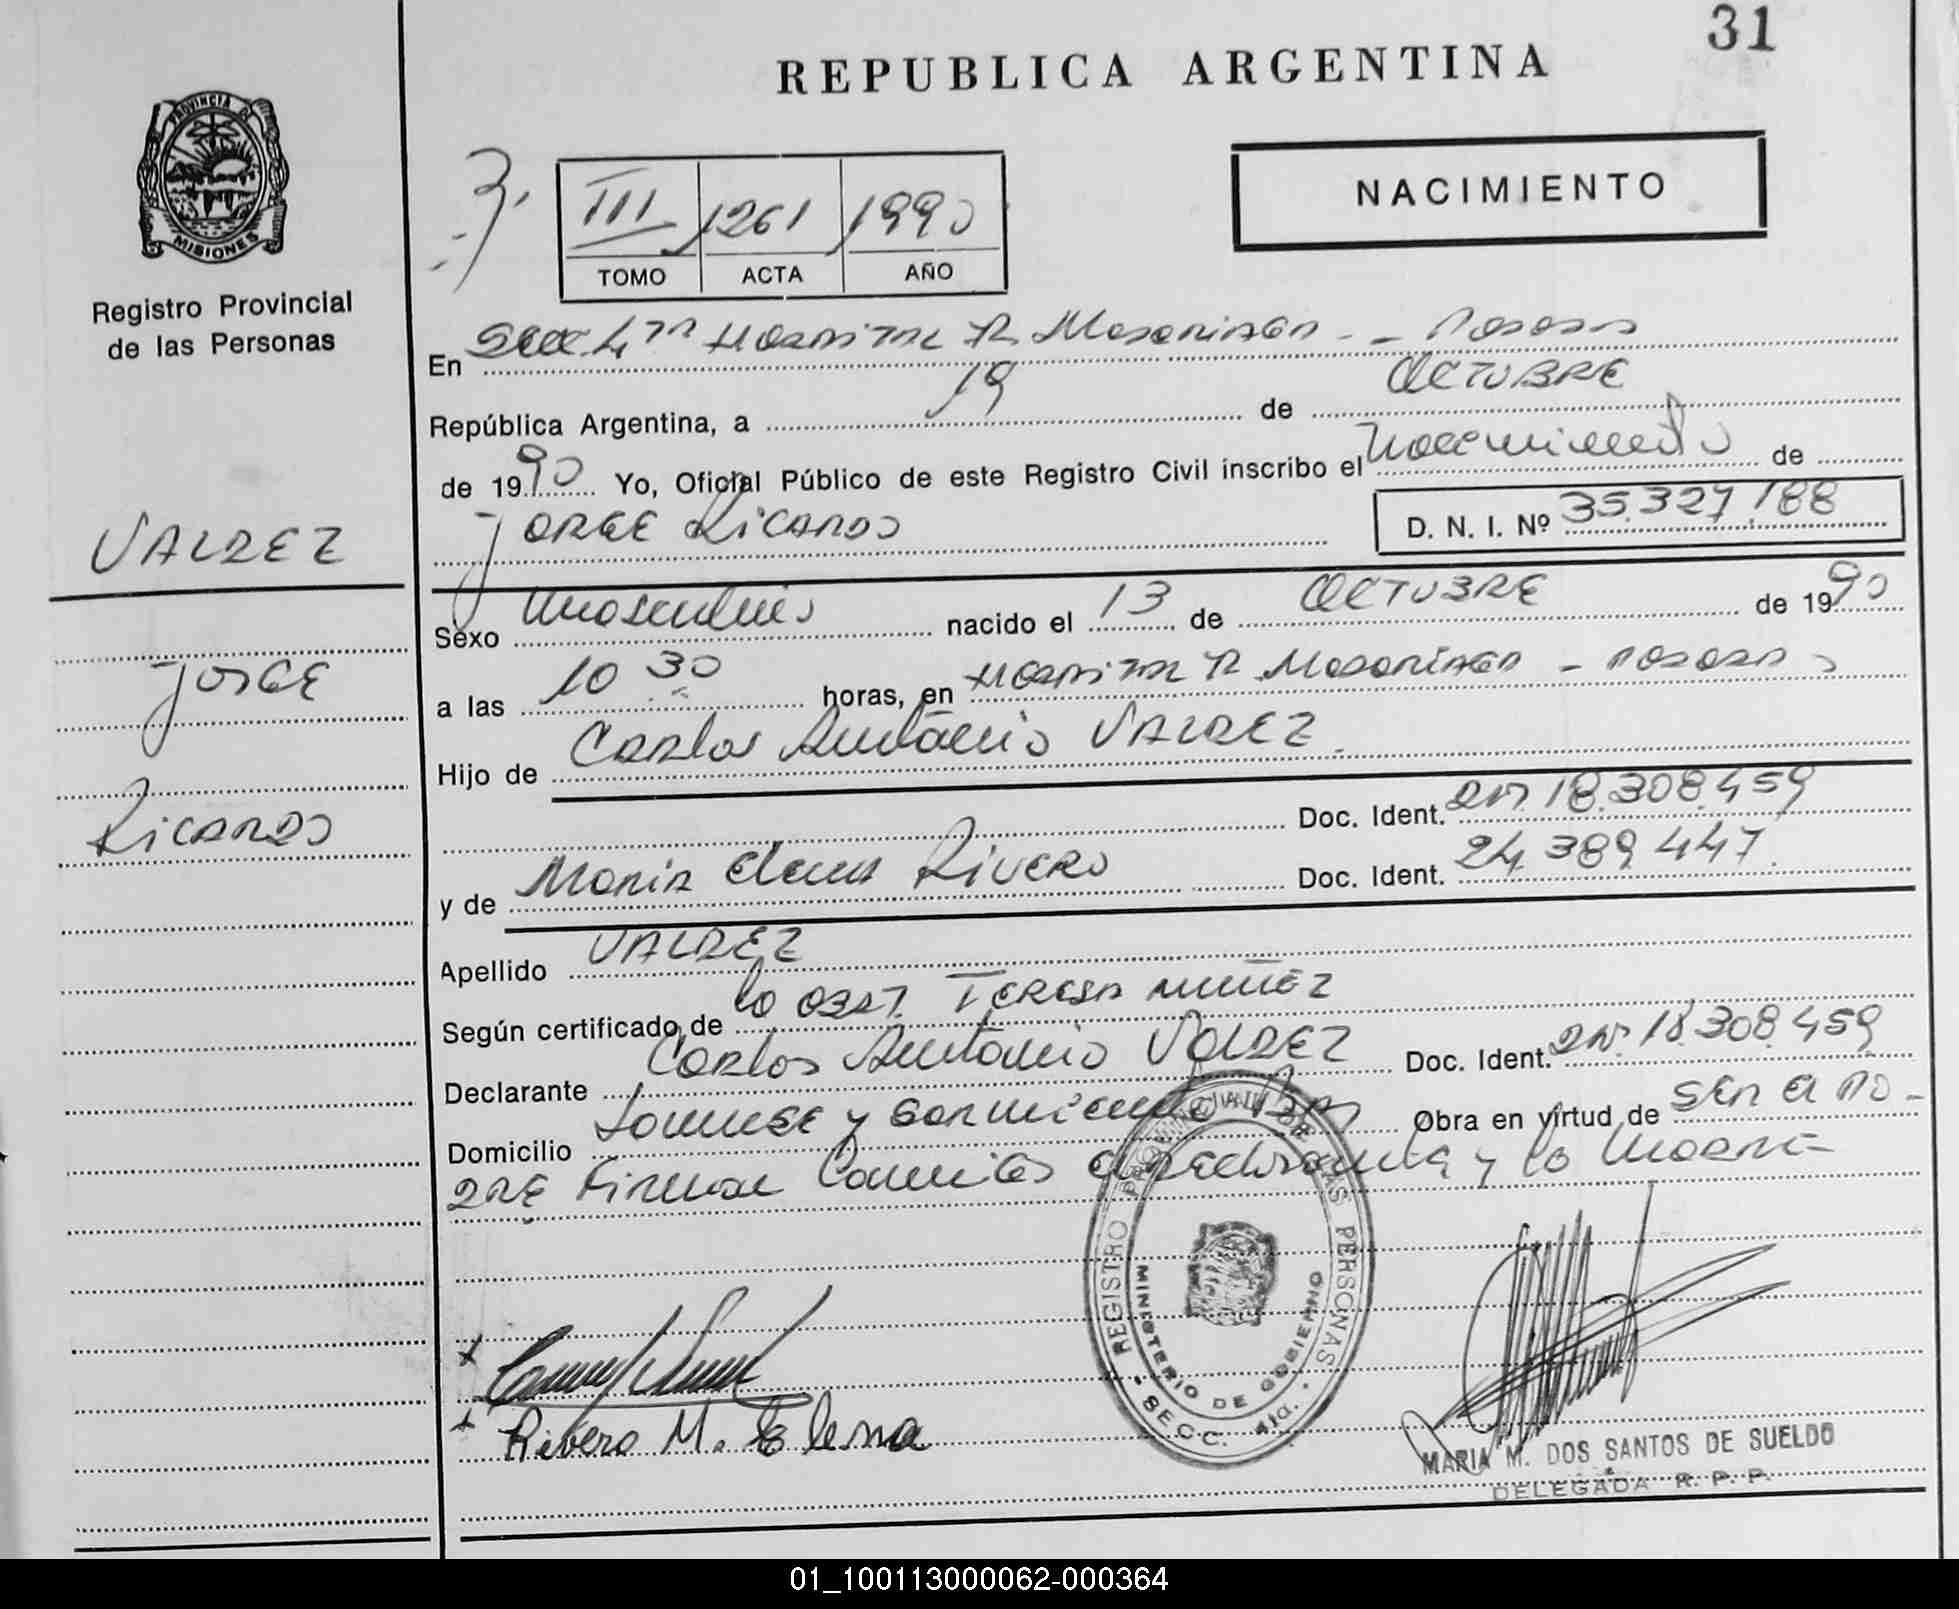 31
REPUBLICA ARGENTINA
PROVINCIA DE
MISIONES
Registro Provincial
de las Personas
III 1261 1990
TOMO ACTA AÑO
NACIMIENTO
En Secc. 4ta Hospital R. Madariaga - Posadas
República Argentina, a 19 de OCTUBRE
de 1990 Yo, Oficial Público de este Registro Civil inscribo el nacimiento de
JORGE RICARDO
D. N. I. Nº 35.327.188
VALDEZ
JORGE
RICARDO
Sexo masculino nacido el 13 de OCTUBRE de 1990
a las 10 30 horas, en Hospital R. Madariaga - Posadas
Hijo de Carlos Antonio VALDEZ
Doc. Ident. DNI. 18.308.459
y de Maria Elena RIVERO Doc. Ident. 24.389.447
Apellido VALDEZ
Según certificado de la Obst. TERESA MUÑEZ
Declarante Carlos Antonio VALDEZ Doc. Ident. DNI. 18.308.459
Domicilio y Sarmiento Obra en virtud de ser el PA-
DRE Firman el declarante y la MADRE
Rivero M. Elena
REGISTRO PROVINCIAL DE LAS PERSONAS
MINISTERIO DE GOBIERNO
SECC. 4ta.
MARIA M. DOS SANTOS DE SUELDO
DELEGADA R. P. P.
01_100113000062-000364